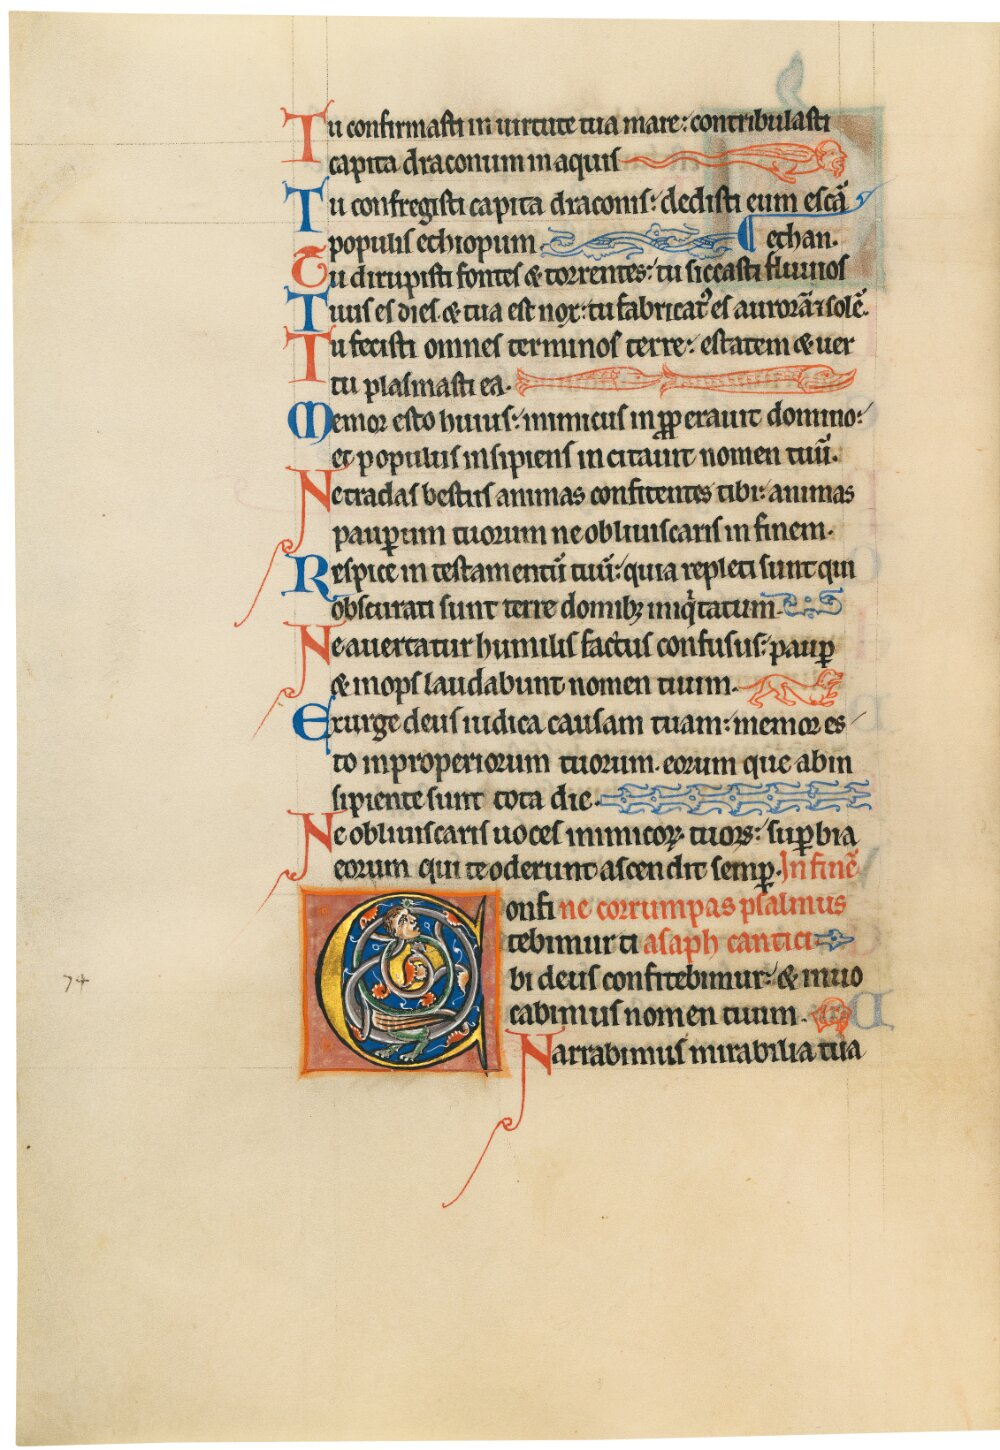 Tu confirmasti in uirtute tua mare: contribulasti
capita draconum in aquis
Tu confregisti capita draconis: dedisti eum escā
populis ethiopum ethan.
Tu dirupisti fontes & torrentes: tu siccasti fluuios
Tuus es dies & tua est nox: tu fabricatꝰ es aurorā ⁊ solē.
Tu fecisti omnes terminos terre: estatem & uer
tu plasmasti ea.
Memor esto huius: inimicus inꝓperauit domino:
et populus insipiens incitauit nomen tuū.
Ne tradas bestiis animas confitentes tibi: animas
pauꝑum tuorum ne obliuiscaris in finem.
Respice in testamentū tuū: quia repleti sunt qui
obscurati sunt terre domibꝫ iniqͥtatum.
Ne auertatur humilis factus confusus: pauꝑ
& inops laudabunt nomen tuum.
Exurge deus iudica causam tuam: memor es
to inproperiorum tuorum. eorum que ab in
sipiente sunt tota die.
Ne obliuiscaris uoces inimicoꝝ tuoꝝ: suꝑbia
eorum qui te oderunt ascendit semꝑ. In finē
Confi ne corrumpas psalmus
tebimur ti asaph cantici
bi deus confitebimur: & inuo
cabimus nomen tuum.
Narrabimus mirabilia tua
74